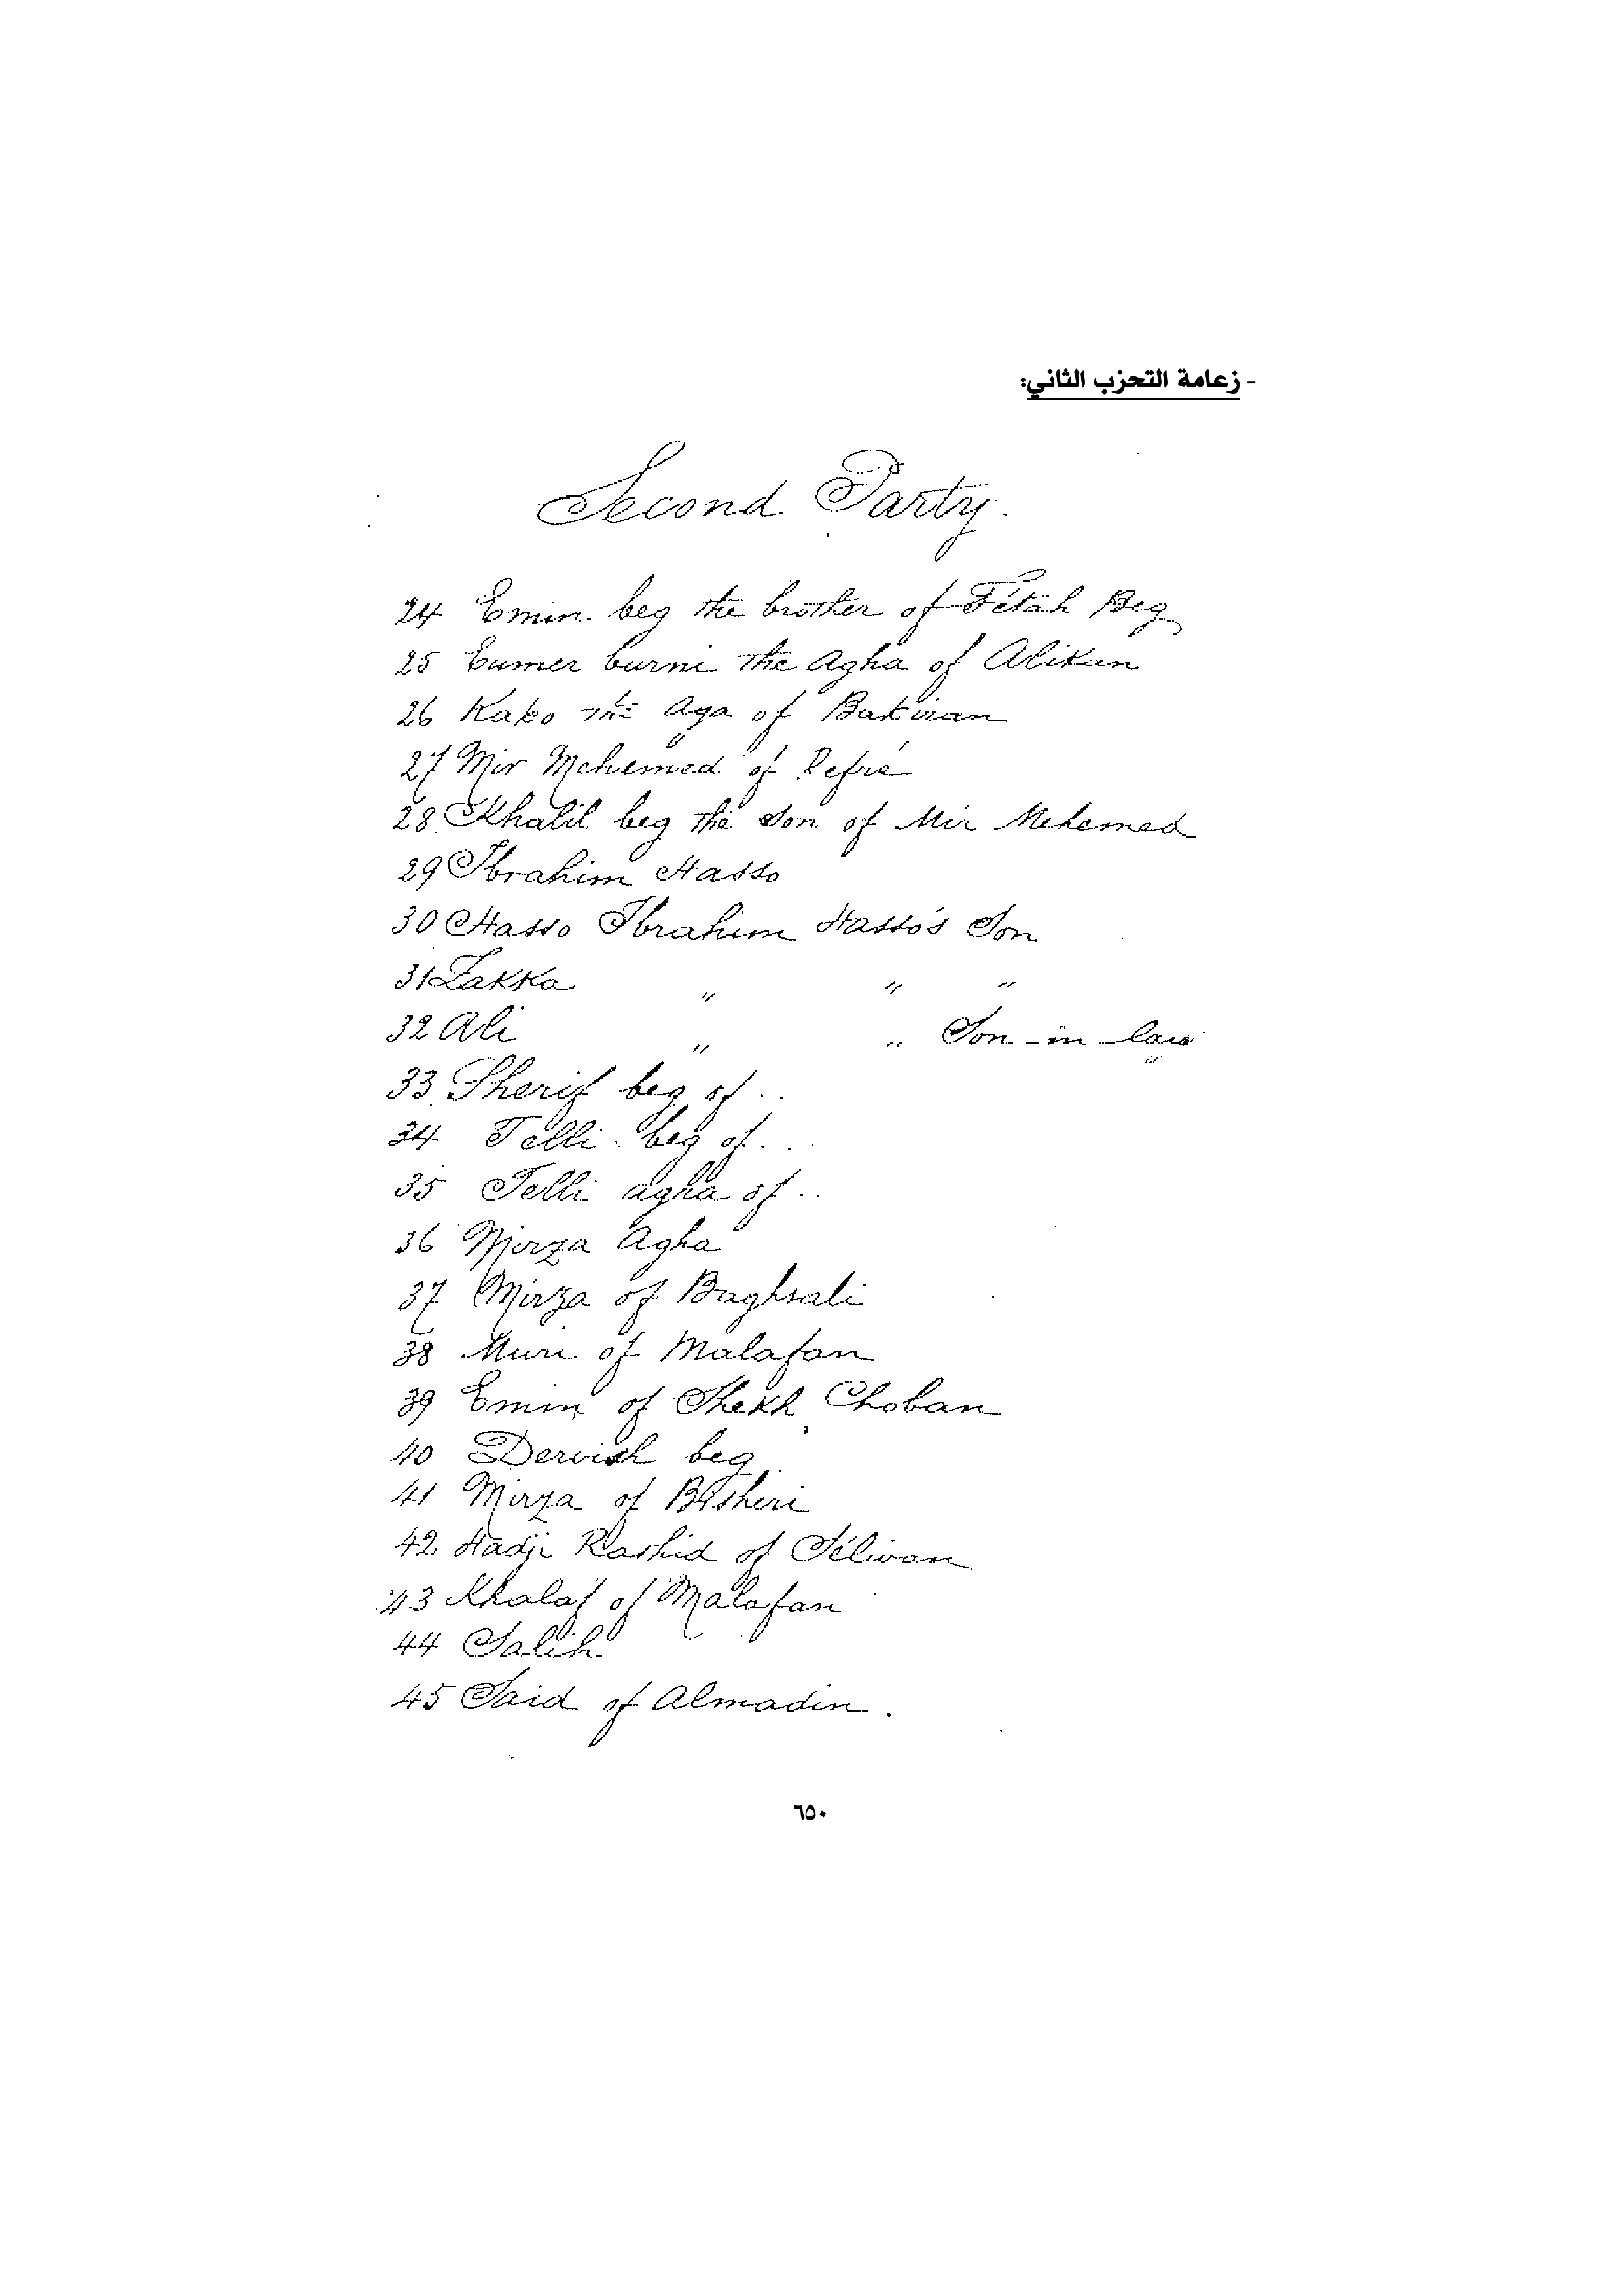 - زعامة التحزب الثاني:
Second Party.
24 Emin beg the brother of Fétah Beg
25 Eumer burni the Agha of Alikan
26 Kako the Aga of Bakiran
27 Mir Mehemed of Refré
28 Khalil beg the son of Mir Mehemed
29 Ibrahim Hasso
30 Hasso Ibrahim Hasso's Son
31 Zakka " " "
32 Ali " " Son-in-law
33 Sherif beg of ..
34 Telli beg of ..
35 Telli agha of ..
36 Mirza Agha
37 Mirza of Baghsali
38 Muri of Malafan
39 Emin of Shekh Choban
40 Dervish beg
41 Mirza of Bisheri
42 Hadji Rashid of Séliwan
43 Khalaf of Malafan
44 Salih
45 Said of Almadin.
٦٥٠